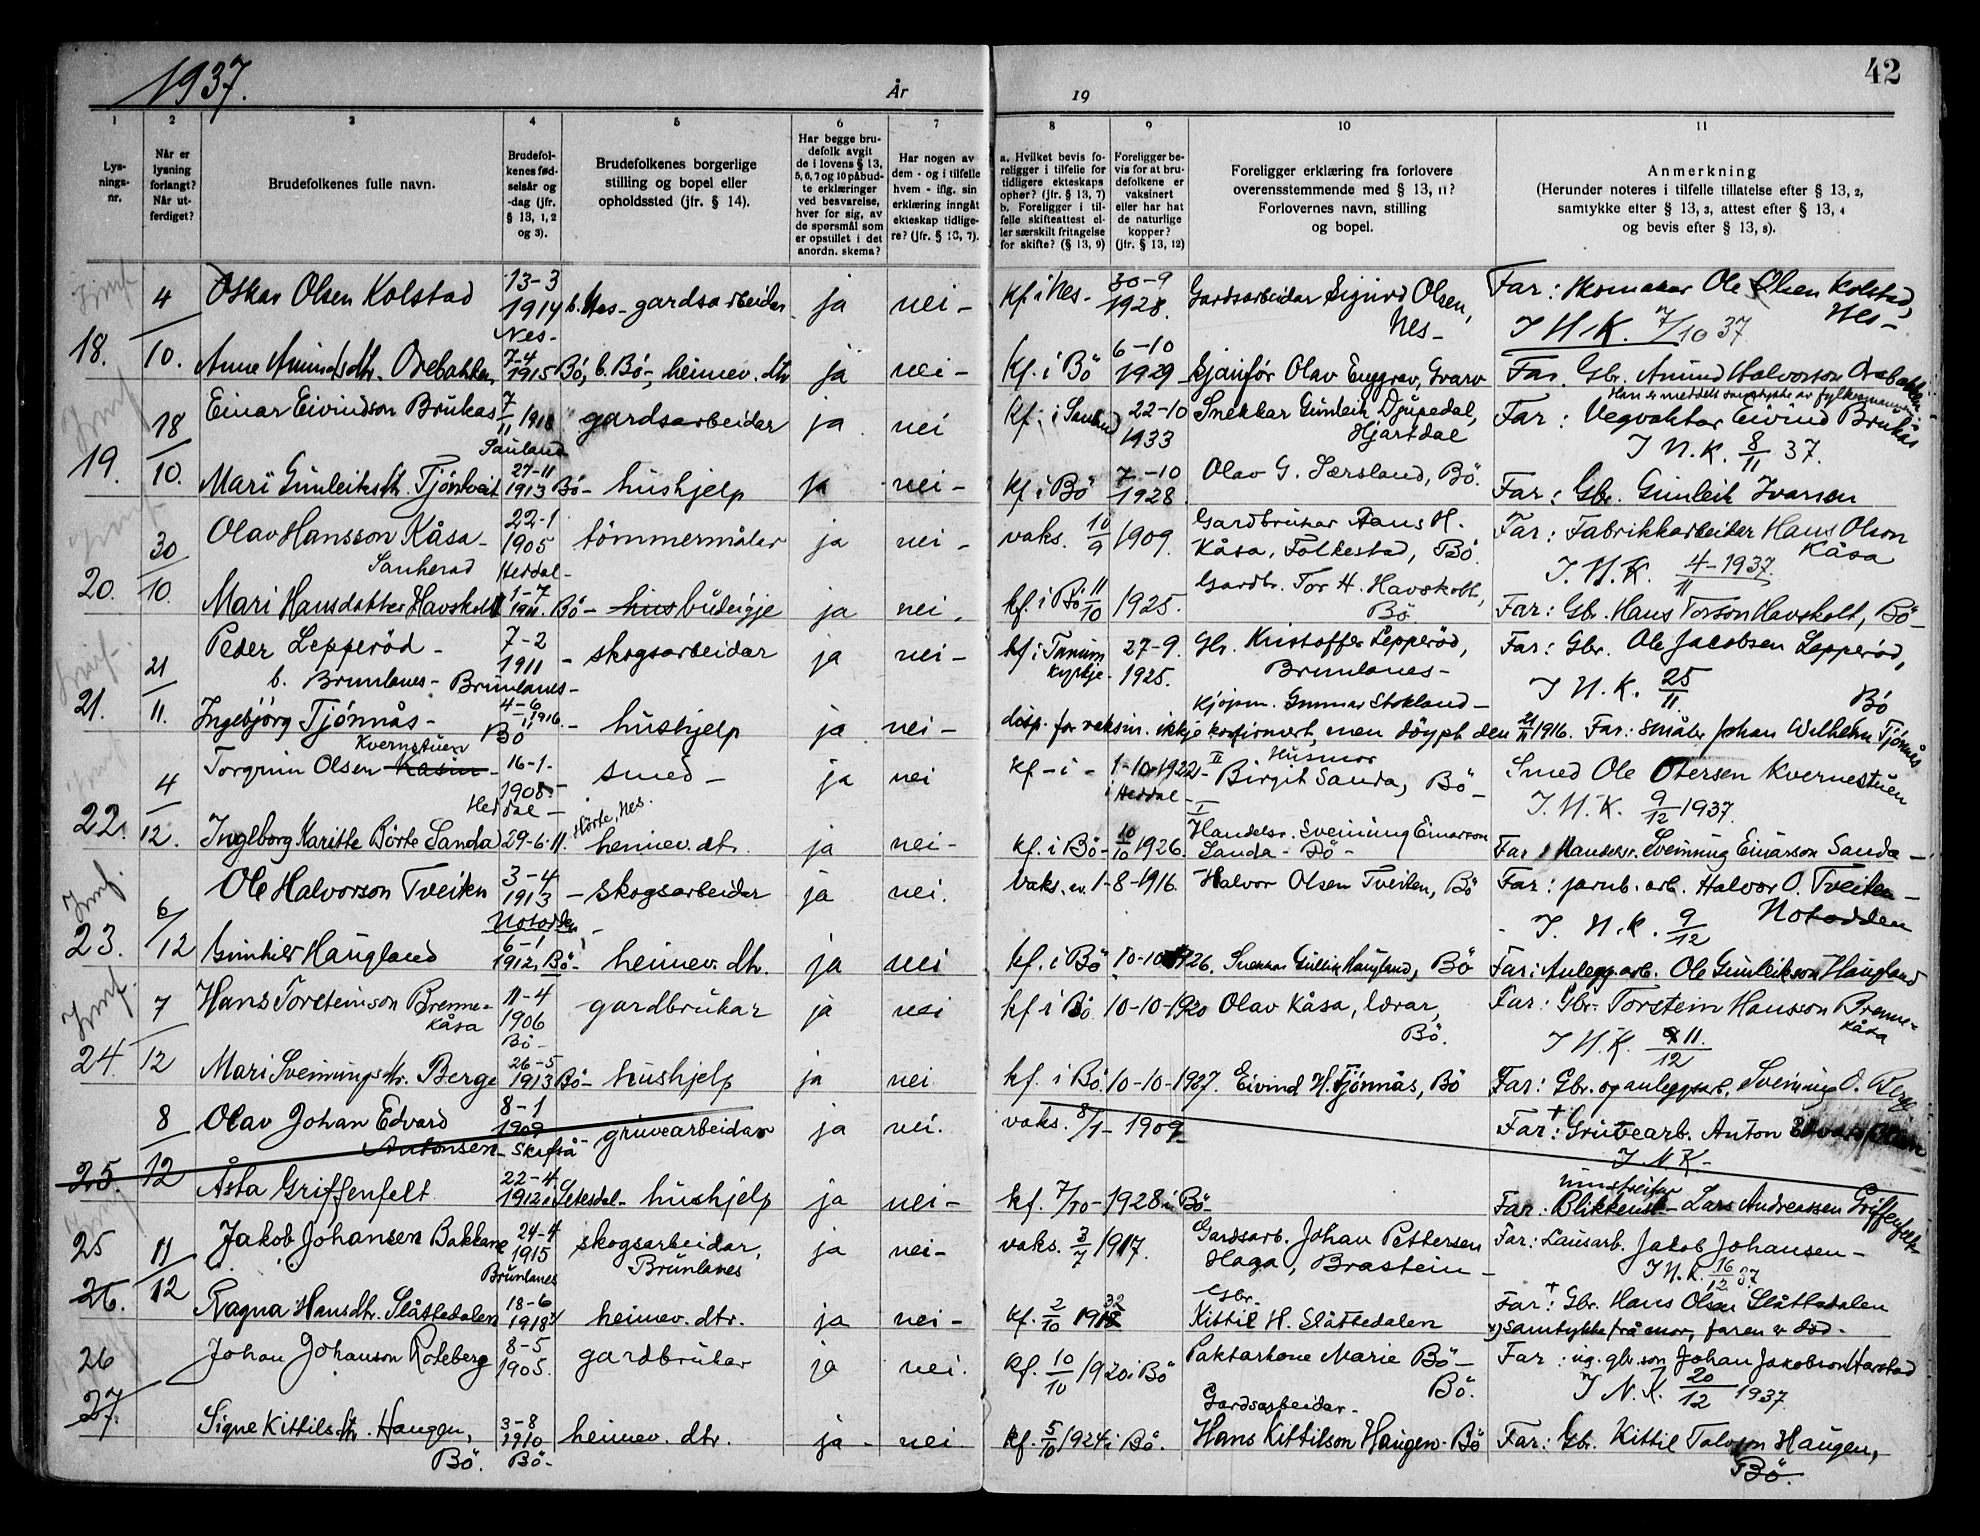 1937.
År
19
42
1
2
3
4
5
6
7
8
9
10
11
Lys-
nings-
nr.
Når er
lysning
forlangt?
Når ut-
ferdiget?
Brudefolkenes fulle navn.
Brudefol-
kenes fød-
selsår og
-dag (jfr.
§ 13, 1, 2
og 3).
Brudefolkenes borgerlige
stilling og bopel eller
opholdssted (jfr. § 14).
Har begge bru-
defolk avgit
de i lovens § 13,
5, 6, 7 og 10 påbud-
te erklæringer
ved besvarelse,
hver for sig, av
de spørsmål som
er opstillet i det
anordn. skema?
Har nogen av
dem - og i tilfelle
hvem - iflg. sin
erklæring inngåt
ekteskap tidlige-
re? (jfr. § 13, 7).
a. Hvilket bevis fo-
religger i tilfelle for
tidligere ekteskaps
ophør? (jfr. § 13, 7)
b. Foreligger i til-
felle skifteattest el-
ler særskilt fritagelse
for skifte? (§ 13, 9)
Foreligger be-
vis for at bru-
defolkene er
vaksinert
eller har hat
de naturlige
kopper?
(jfr. § 13, 12)
Foreligger erklæring fra forlovere
overensstemmende med § 13, 11?
Forlovernes navn, stilling
og bopel.
Anmerkning
(Herunder noteres i tilfelle tillatelse efter § 13, 2,
samtykke efter § 13, 3, attest efter § 13, 4
og bevis efter § 13, 8).
18. 4/10. Oskar Olsen Kolstad 13-3 1914 Nes- b. Nes- gardsarbeidar ja nei- kf. i Nes- 30-9 1928. Gardsarbeidar Sigurd Olsen, Nes- Far: skomakar Ole Olsen Kolstad, Nes-
I N. K. 7/10 37
Anne Amundsdtr. Orebakken, 7-4 1915 Bö, b. Bö-, heimev. dtr ja nei- kf. i Bö 6-10 1929 Sjåfór Olav Enggrav, Gvarv Far. Gbr. Amund Halvorson Orebakken
Han er meddelt samtykke av fylkesmannen
19. 18/10. Einar Eivindson Brukås 7/11 1918 Sauland gardsarbeidar ja nei kf. i Sauland 22-10 1933 Snekkar Gunleik Djupedal, Hjartdal Far: Vegvaktar Eivind Brukås
I N. K. 8/11 37.
Mari Gunleiksdtr. Tjónntveit 27-11 1913 Bö- hushjelp ja nei- kf i Bö 7-10 1928 Olav G. Særsland, Bö. Far: Gbr. Gunleik Ivarson
20. 30/10. Olav Hansson Kåsa- Sauherad 22-1 1905 Heddal- tömmermålar ja nei- vaks. 10/9 1909. Gardbrukar Hans H. Kåsa, Folkestad, Bö. Far: Fabrikkarbeider Hans Olson Kåsa
I. N. K. 4-1937 11
Mari Hansdatter Havskolt 1-7 1911. Bö- hus budeigje ja nei. kf. i Bö 11/10 1925. Gardbr. Tor H. Havskolt, Bö. Far: Gbr. Hans Torson Havskolt, Bö-
21. 21/11. Peder Lepperöd- b. Brunlanes- 7-2 1911 Brunlanes- skogsarbeidar ja nei- kf i Tanum kyrkje- 27-9. 1925. Gbr. Kristoffer Lepperöd, Brunlanes- Far: Gbr. Ole Jacobsen Lepperöd,
I N. K. 25/11.
Ingebjörg Tjónnås- 4-6 1916. Bö- hushjelp ja nei- Kjöpm. Gunnar Stokland- Bö
disp. for vaksin. ikkje konfirmert, men döypt den 21/11 1916. Far: småbr Johan Wilhelm Tjónnås
22. 4/12. Torgrim Olsen Kasin Kvernstuen- 16-1. 1908- Heddal- smed- ja nei kf- i- 1-10-1922 i Heddal- II Husmor Birgit Sanda, Bö- Smed Ole Otersen Kvernestuen
I. N. K. 9/12 1937.
Ingeborg Karitte Börte Sanda 29-6-11. i Börte, Nes. heimev. dtr. ja nei- kf. i Bö- 10/10 1926. I Handelsr. Sveinung Einarson Sanda- Bö- Far: Handelsr. Sveinung Einarson Sanda-
23. 6/12 Ole Halvorson Tveiten 3-4 1913 Notodden- skogsarbeidar ja nei. Vaks. 1-8-1916. Halvor Olsen Tveiten, Bö Far: jarnb. arb. Halvor O. Tveiten- Notodden
I. N. K. 9/12
Gunhild Haugland 6-1 1912, Bö- heimev. dtr. ja nei kf. i Bö 10-10-1926. Snekkar Gullik Haugland, Bö Far: Anlegg.arb. Ole Gunleikson Haugland
24. 7/12 Hans Torsteinson Brenne-kåsa 11-4 1906 Bö- gardbrukar ja nei kf i Bö. 10-10-1920 Olav Kåsa, lærar, Bö. Far: Gbr. Torstein Hansson Brenne-kåsa
I N. K. 11./12
Mari Sveinungsdtr. Berge 26-5 1913 Bö- hushjelp ja nei kf. i Bö. 10-10-1927. Eivind H. Tjónnås, Bö Far: Gbr. og anleggsarb. Sveinung O. Berge
25. 8/12 Olav Johan Edvard Antonsen- 8-1 1909 Skafså- gruvearbeidar ja nei. vaks. 8/1-1909 Far: † Gruvearb. Anton Edvard Olsen
I N K-
Åsta Griffenfelt 22-4 1912 i Setesdal- hushjelp ja nei- kf. 7/10-1928 i Bö- Far: Blikkensl- Lars Andreassen Griffenfelt-
25 26. 11/12 Jakob Johansen Bakkane 24-4 1915 Brunlanes skogsarbeidar, Brunlanes ja nei- vaks. 3/7 1917. Gardsarb. Johan Pettersen Haga, Brastein- Far: Lausarb. Jakob Johansen-
I N. K. 16/12 37
Ragna Hansdtr. Slåttedalen 18-6 1918 x) heimev. dtr. ja nei- kf. 2/10 1932 Gbr. Kittil H. Slåttedalen Far: † Gbr. Hans Olsen Slåttedalen
x) Samtykke frå mor, faren er död-
26 27. Johan Johanson Roteberg 8-5 1905. gardbrukar ja nei. kf. 10/10 1920 i Bö Paktarkone Marie Bö- Bö. Far: ug. gbr. son Johan Jakobson Harstad
I N. K. 20/12 1937
Signe Kittilsdtr. Haugen, Bö. 3-8 1910 Bö- heimev. dtr. ja- nei kf. 5/10 1924 i Bö. Gardsarbeidar- Hans Kittilson Haugen- Bö Far: Gbr. Kittil Talvson Haugen, Bö.